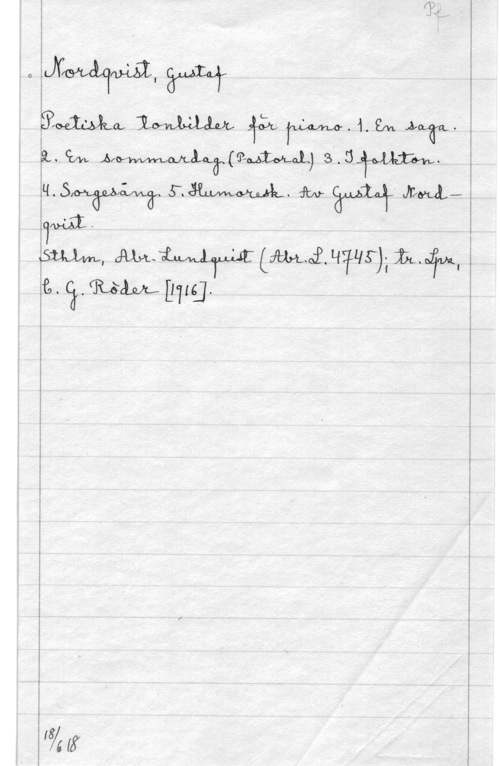 Pf
Nordqvist, Gustaf
Poetiska tonbilder för piano. 1. En saga.
2. En sommardag. (Pastoral) 3. I folkton.
4. Sorgesång. 5. Humoresk. Av Gustaf Nord-
qvist.
Sthlm, Abr. Lundquist (Abr. L. 4745); tr. Lpz,
C. G. Röder [1916].
18/6 18